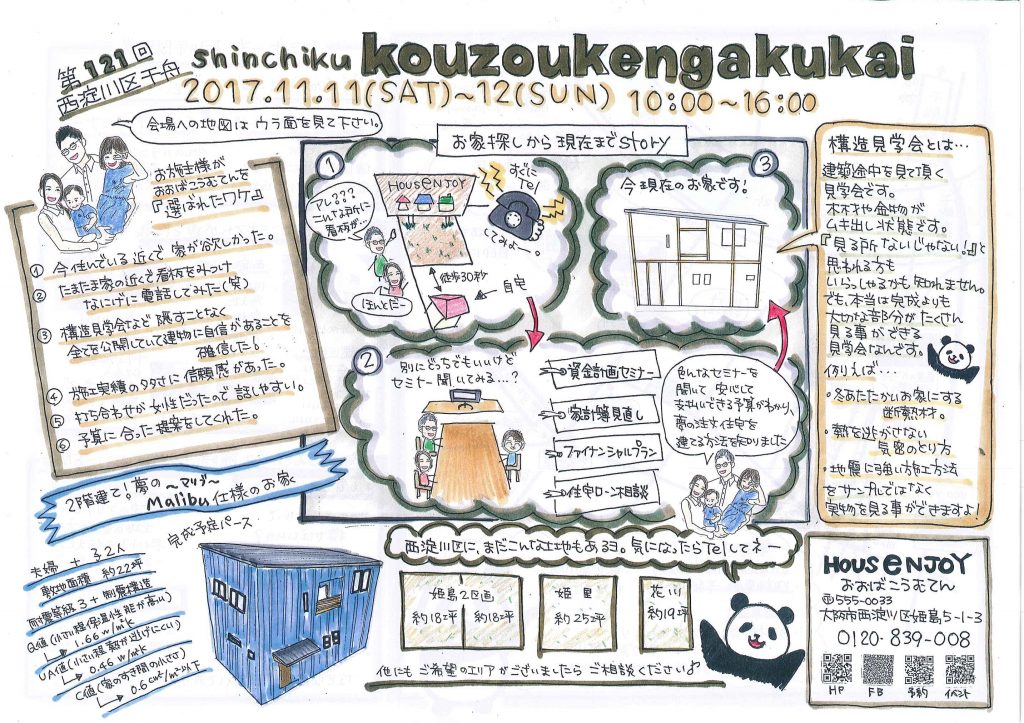 第121回
西淀川区千舟
shinchiku kouzoukengakukai
2017.11.11(SAT)~12(SUN) 10:00~16:00
会場への地図は ウラ面を見て下さい。
お施主様が
おおばこうむてんを
『選ばれたワケ』
① 今住んでいる近くで 家が欲しかった。
② たまたま家の近くで看板をみつけ
なにげに電話してみた(笑)
③ 構造見学会など 隠すことなく
全てを公開していて建物に自信があることを
確信した!
④ 施工実績の多さに信頼感があった。
⑤ 打ち合わせが女性だったので 話しやすい。
⑥ 予算に合った提案をしてくれた。
お家探しから現在までstory
①
アレ???
こんな所に
看板が…
HOUSENJOY
すぐに
Tel
してみよー。
徒歩30秒
自宅
ほんとだー
②
別にどっちでもいいけど
セミナー聞いてみる…?
資金計画セミナー
家計簿見直し
ファイナンシャルプラン
住宅ローン相談
色んなセミナーを
聞いて 安心して
支払いできる予算がわかり、
夢の注文住宅を
建てる方法を知りました
③
今現在のお家です!
構造見学会とは…
建築途中を見て頂く
見学会です。
木材や金物が
ムキ出し状態です。
『見る所ないじゃない!』と
思われる方も
いらっしゃるかも知れません。
でも、本当は完成よりも
大切な部分がたくさん
見る事ができる
見学会なんです。
例えば…
・冬あたたかいお家にする
断熱材。
・熱を逃がさない
気密のとり方
・地震に強い施工方法
をサンプルではなく
実物を見る事ができますよ!
2階建て!夢の ~マリブ~
Malibu仕様のお家
完成予定パース…
夫婦 + 子2人
敷地面積 約22坪
耐震等級3+制震構造
Q値(小さい程保温性能が高い)
1.66w/㎡k
UA値(小さい程熱が逃げにくい)
0.46w/㎡k
C値(家のすき間の小ささ)
0.6c㎡/㎡以下
西淀川区に、まだこんな土地もあるヨ。気になったらTelしてネー
姫島2区画
約18坪
約18坪
姫里
約25坪
花川
約19坪
他にも ご希望のエリアがございましたら ご相談ください♪
HOUSENJOY
おおばこうむてん
〒555-0033
大阪市西淀川区姫島5-1-3
0120-839-008
HP
FB
予約
イベント